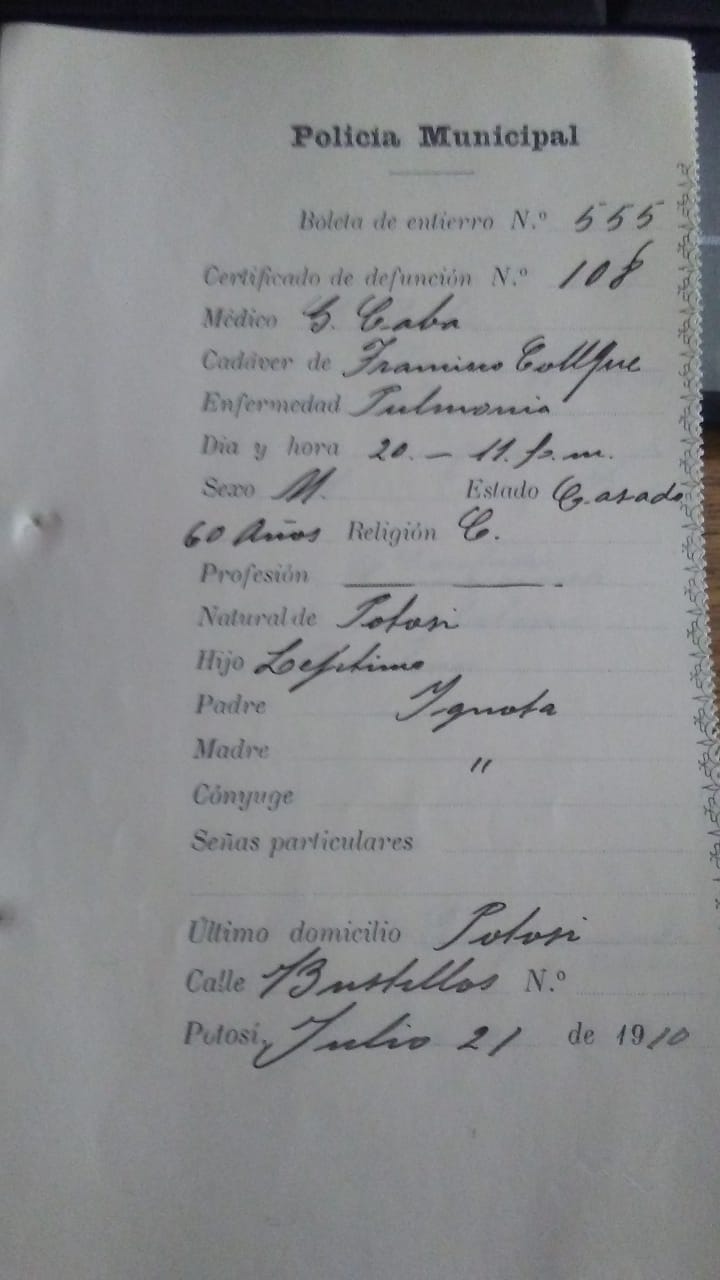 Policía Municipal
Boleta de entierro N.º 555
Certificado de defunción N.º 108
Médico G. Caba
Cadáver de Francisco Collque
Enfermedad Pulmonia
Dia y hora 20. — 11. p. m.
Sexo M. Estado Casado
60 Años Religión C.
Profesión
Natural de Potosi
Hijo Lejitimo
Padre Ignota
Madre "
Cónyuge
Señas particulares
Último domicilio Potosi
Calle Bustillos N.º
Potosí, Julio 21 de 1910